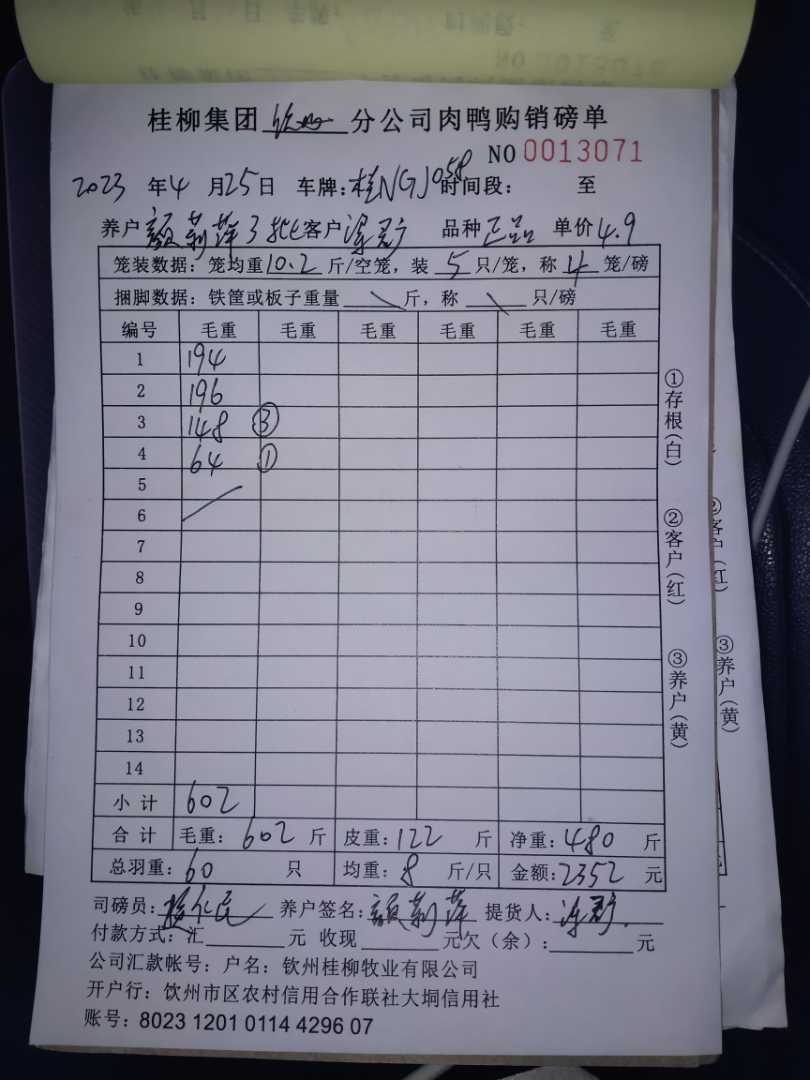 桂柳集团 钦州 分公司肉鸭购销磅单
NO 0013071
2023 年 4 月 25 日 车牌：桂NGJ058 时间段： 至
养户 颜莉萍 3批 客户 品种 正品 单价 4.9
笼装数据：笼均重 10.2 斤/空笼，装 5 只/笼，称 4 笼/磅
捆脚数据：铁筐或板子重量 \ 斤，称 \ 只/磅
编号 毛重 毛重 毛重 毛重 毛重 毛重
1 194
2 196
3 148 ③
4 64 ①
5
6
7
8
9
10
11
12
13
14
小计 602
合计 毛重：602 斤 皮重：122 斤 净重：480 斤
总羽重：60 只 均重：8 斤/只 金额：2352 元
司磅员： 养户签名：颜莉萍 提货人：
付款方式：汇 元 收现 元欠（余）： 元
公司汇款帐号：户名：钦州桂柳牧业有限公司
开户行：饮州市区农村信用合作联社大垌信用社
账号：8023 1201 0114 4296 07
①存根（白）
②客户（红）
③养户（黄）
②客户（红）
③养户（黄）